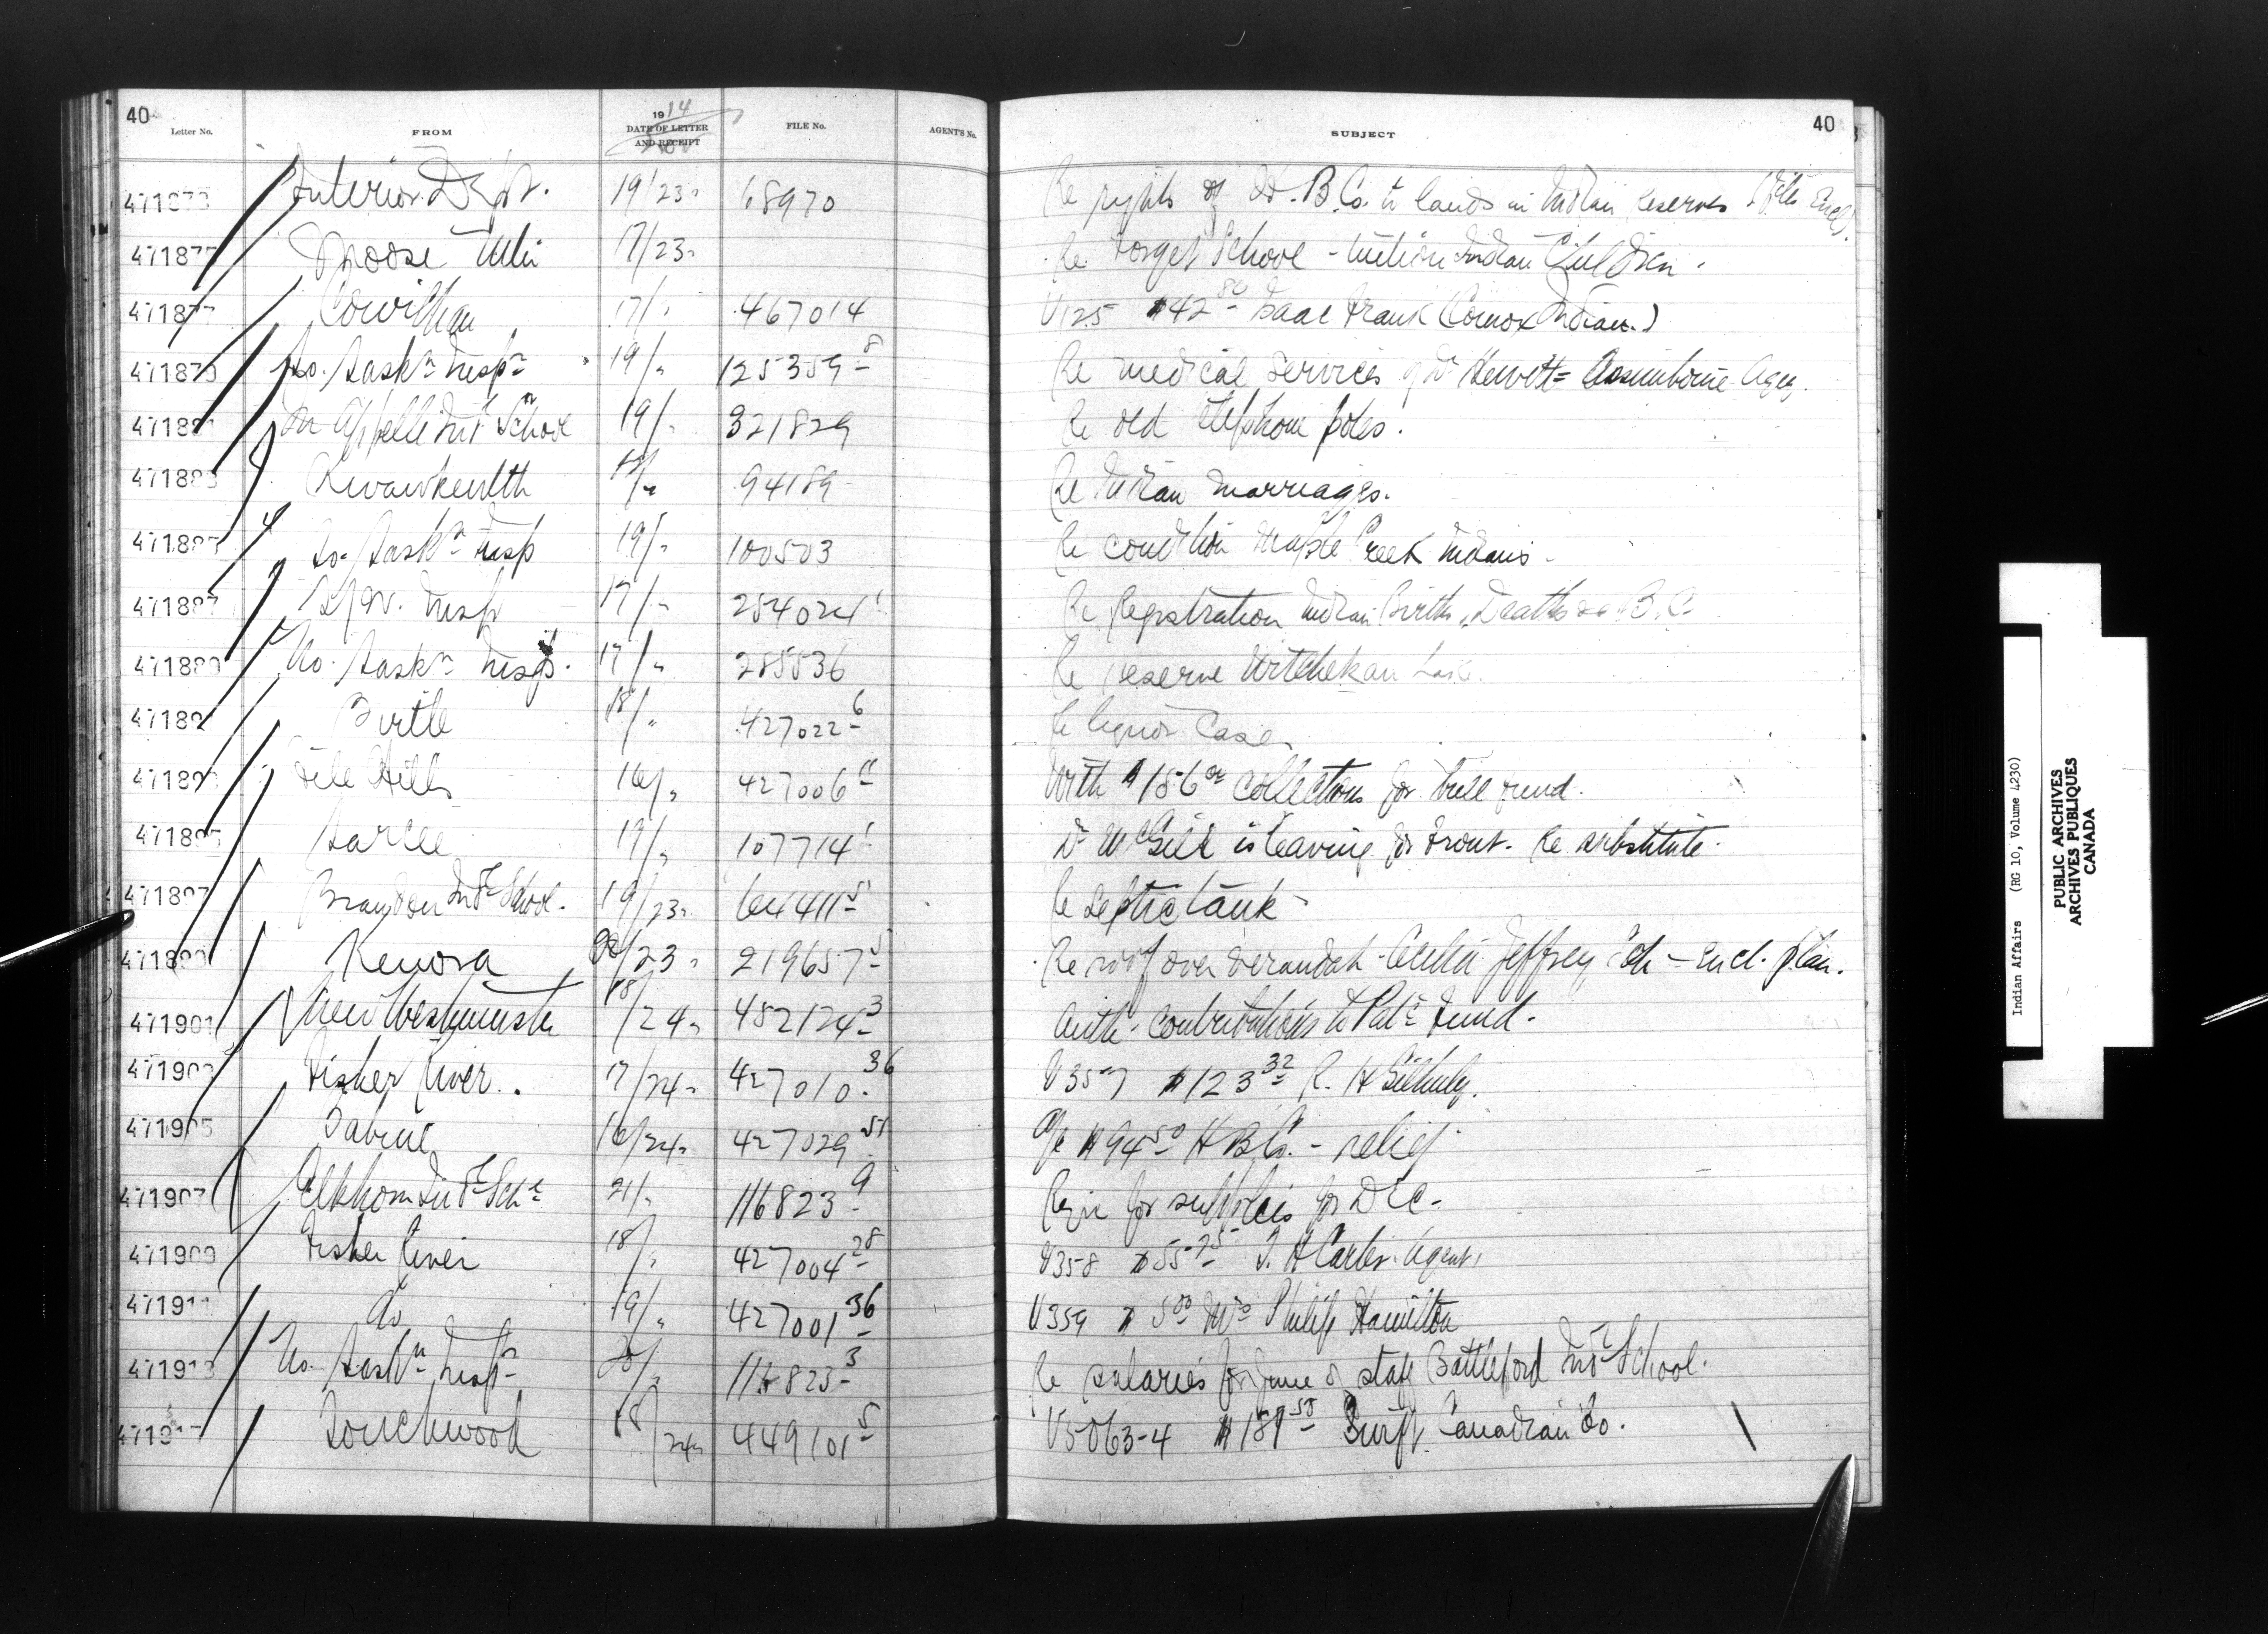 40
Letter No. FROM 1914 DATE OF LETTER AND RECEIPT Nov FILE No. AGENT'S No. SUBJECT 40
Interior Dept. 19/23 68970 Re rights of H.B.Co. to lands in Indian Reserves
Moose Mtn 17/23 Re Forget School - tuition Indian Children.
Cowichan 17/" 467014 V125 $42 80 Isaac Frank (Comox Indian.)
So. Saskn Inspn 19/" 125359-8 Re medical services of Dr Hewitt = Assiniboine Agcy.
Qu'Appelle Indl School 19/" 321829 Re old telephone poles.
471883 Kwawkewlth 94189 Re Indian marriages.
So. Saskn Insp 19/" 100503 Re condition Maple Creek Indians -
471887 Insp 17/" 254024 Re Registration Indian Births, Deaths &c B.C.
471889 No. Saskn Insp. 17/" 285536 Re reserve Witchekan Lake.
Birtle 18/" 427022-6 Re liquor Case
File Hills 16/" 427006-11 With $186 00 collections for bull fund.
Sarcee 17/" 107714 Dr McGill is leaving for front. Re substitute.
471897 Brandon Indl School. 19/23 64411-5 Re Septic tank -
Kenora 20/23 219657-5 Re roof over verandah - Cecilia Jeffrey Sch - Encl. plan.
471901 New Westminster 18/24 482124-3 Auth. contributions to Patc Fund.
Fisher River. 17/24 427010-36 V357 $123 32
471905 Babine 16/24 427029-51 a/c $94 50 H B Co. - relief
471907 Elkhorn Indl Schl 21/" 116823-9 Reqn for supplies for Dec -
471909 Fisher River 18/" 427004-28 V358 $55 75 T. H Carter. Agent.
Do 19/" 427001-36 V359 $5 00 Mrs Philip Hamilton
No. Saskn Inspn 20/" 116823-3 Re salaries for June of staff Battleford Indl School.
Touchwood 18/24 449101-5 V5063-4 Swift Canadian Co.
Indian Affairs (RG 10, Volume 4230)
PUBLIC ARCHIVES
ARCHIVES PUBLIQUES
CANADA